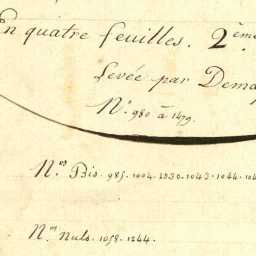 En quatre feuilles. 2ème
Levée par Dema
N.° 980 à 1479.
N.os Bis. 985. 1004. 1030. 1043. 1044.
N.os Nuls. 1058. 1244.